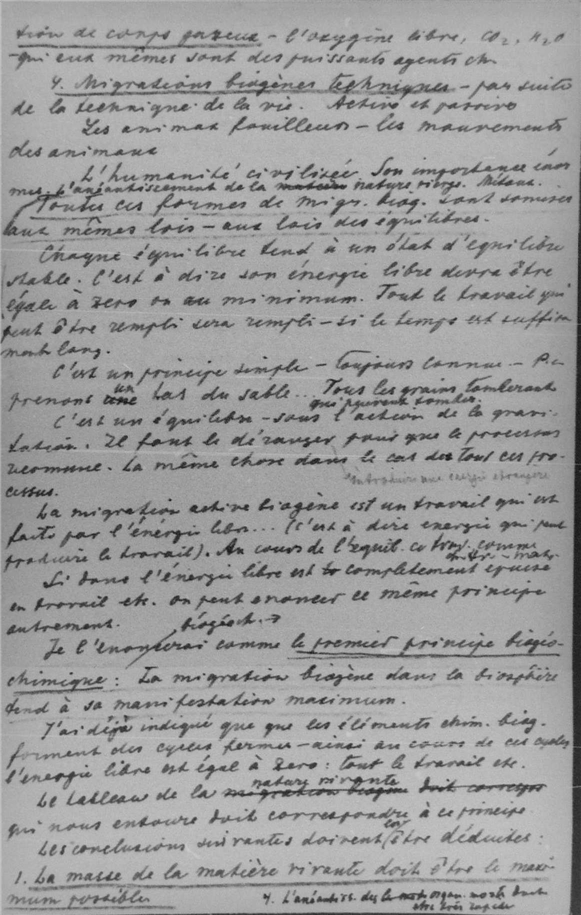 tion de corps gazeux - l'oxygène libre, CO2, H2O
qui eux mêmes sont des puissants agents ch.
4. Migrations biogènes techniques - par suite
de la technique de la vie. Active et passive
Les animax fouilleurs - les mouvements
des animaux
L'humanité civilisée. Son importance énor
mes. L'anéantissement de la nature vierge. Métaux.
Toutes ces formes de migr. biog. sont soumises
aux mêmes lois - aux lois des équilibres.
Chaque équilibre tend à un état d'equilibre
stable. C'est à dire son énergie libre devra être
égale à zero ou au minimum. Tout le travail qui
peut être rempli sera rempli - si le temps est suffisa
ment long.
C'est un principe simple - toujours connue -
prenons un tas du sable... Tous les grains tomberont
qui peuvent tomber.
C'est un équilibre - sous l'action de la gravi-
tation. Il faut le déranger pour que le processus
recomence. La même chose dans le cas des tous ces pro-
cessus.
introduire une energie etrangère
La migration active biogène est un travail qui est
faite par l'énergie libre... (C'est à dire energie qui peut
produire le travail). Au cours de l'equil. comme
Si dans l'énergie libre est complètement epuisé
en travail etc. on peut enoncer ce même principe
autrement. biogéoch.
Je l'enoncerai comme le premier principe biogéo-
chimique: La migration biogène dans la biosphère
tend à sa manifestation maximum.
J'ai déjà indiqué que que les éléments chim. biog.
forment des cycles fermes - ainsi au cours de ces cycles
l'energie libre est égal à zero: tout le travail etc.
nature vivante
Le tableau de la migration biogène doit corresp
qui nous entoure doit correspondre à ce principe
Les conclusions suivantes doivent être déduites:
1. La masse de la matière vivante doit être le maxi-
mum possible
4. L'anéantis. des organ. morts doit
être très rapide